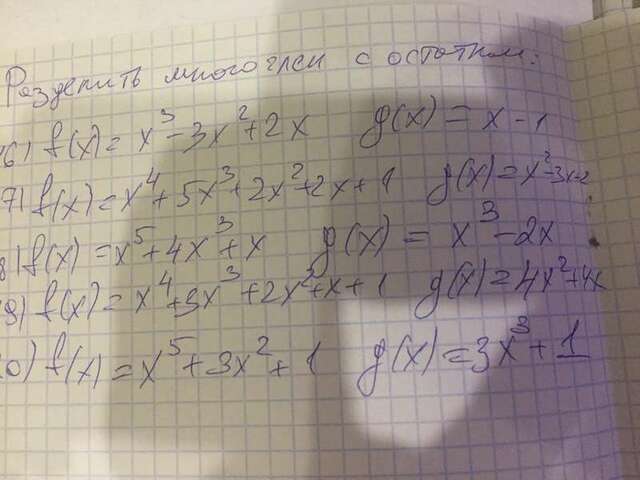 Разделить многочлен с остатком:
6) f(x) = x³ - 3x² + 2x g(x) = x - 1
7) f(x) = x⁴ + 5x³ + 2x² + 2x + 1 g(x) = x² - 3x + 2
8) f(x) = x⁵ + 4x³ + x g(x) = x³ - 2x
9) f(x) = x⁴ + 3x³ + 2x² + x + 1 g(x) = 4x² + x
0) f(x) = x⁵ + 3x² + 1 g(x) = 3x³ + 1